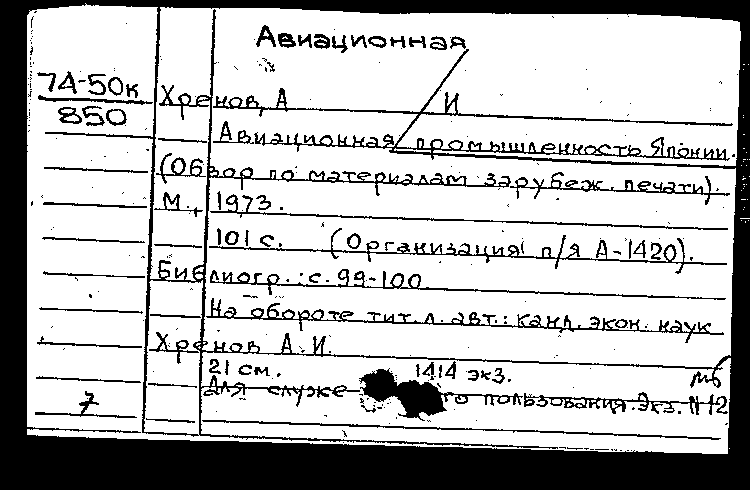 Авиационная
74-50к
850
Хренов, А И
Авиационная промышленность Японии.
(Обзор по материалам зарубеж. печати).
М., 1973.
101 с. (Организация п/я А-1420).
Библиогр.: с. 99-100
На обороте тит. л. авт.: канд. экон. наук
Хренов А. И.
21 см. 1414 экз. мб
Для служе го пользования. Экз. N 12
7